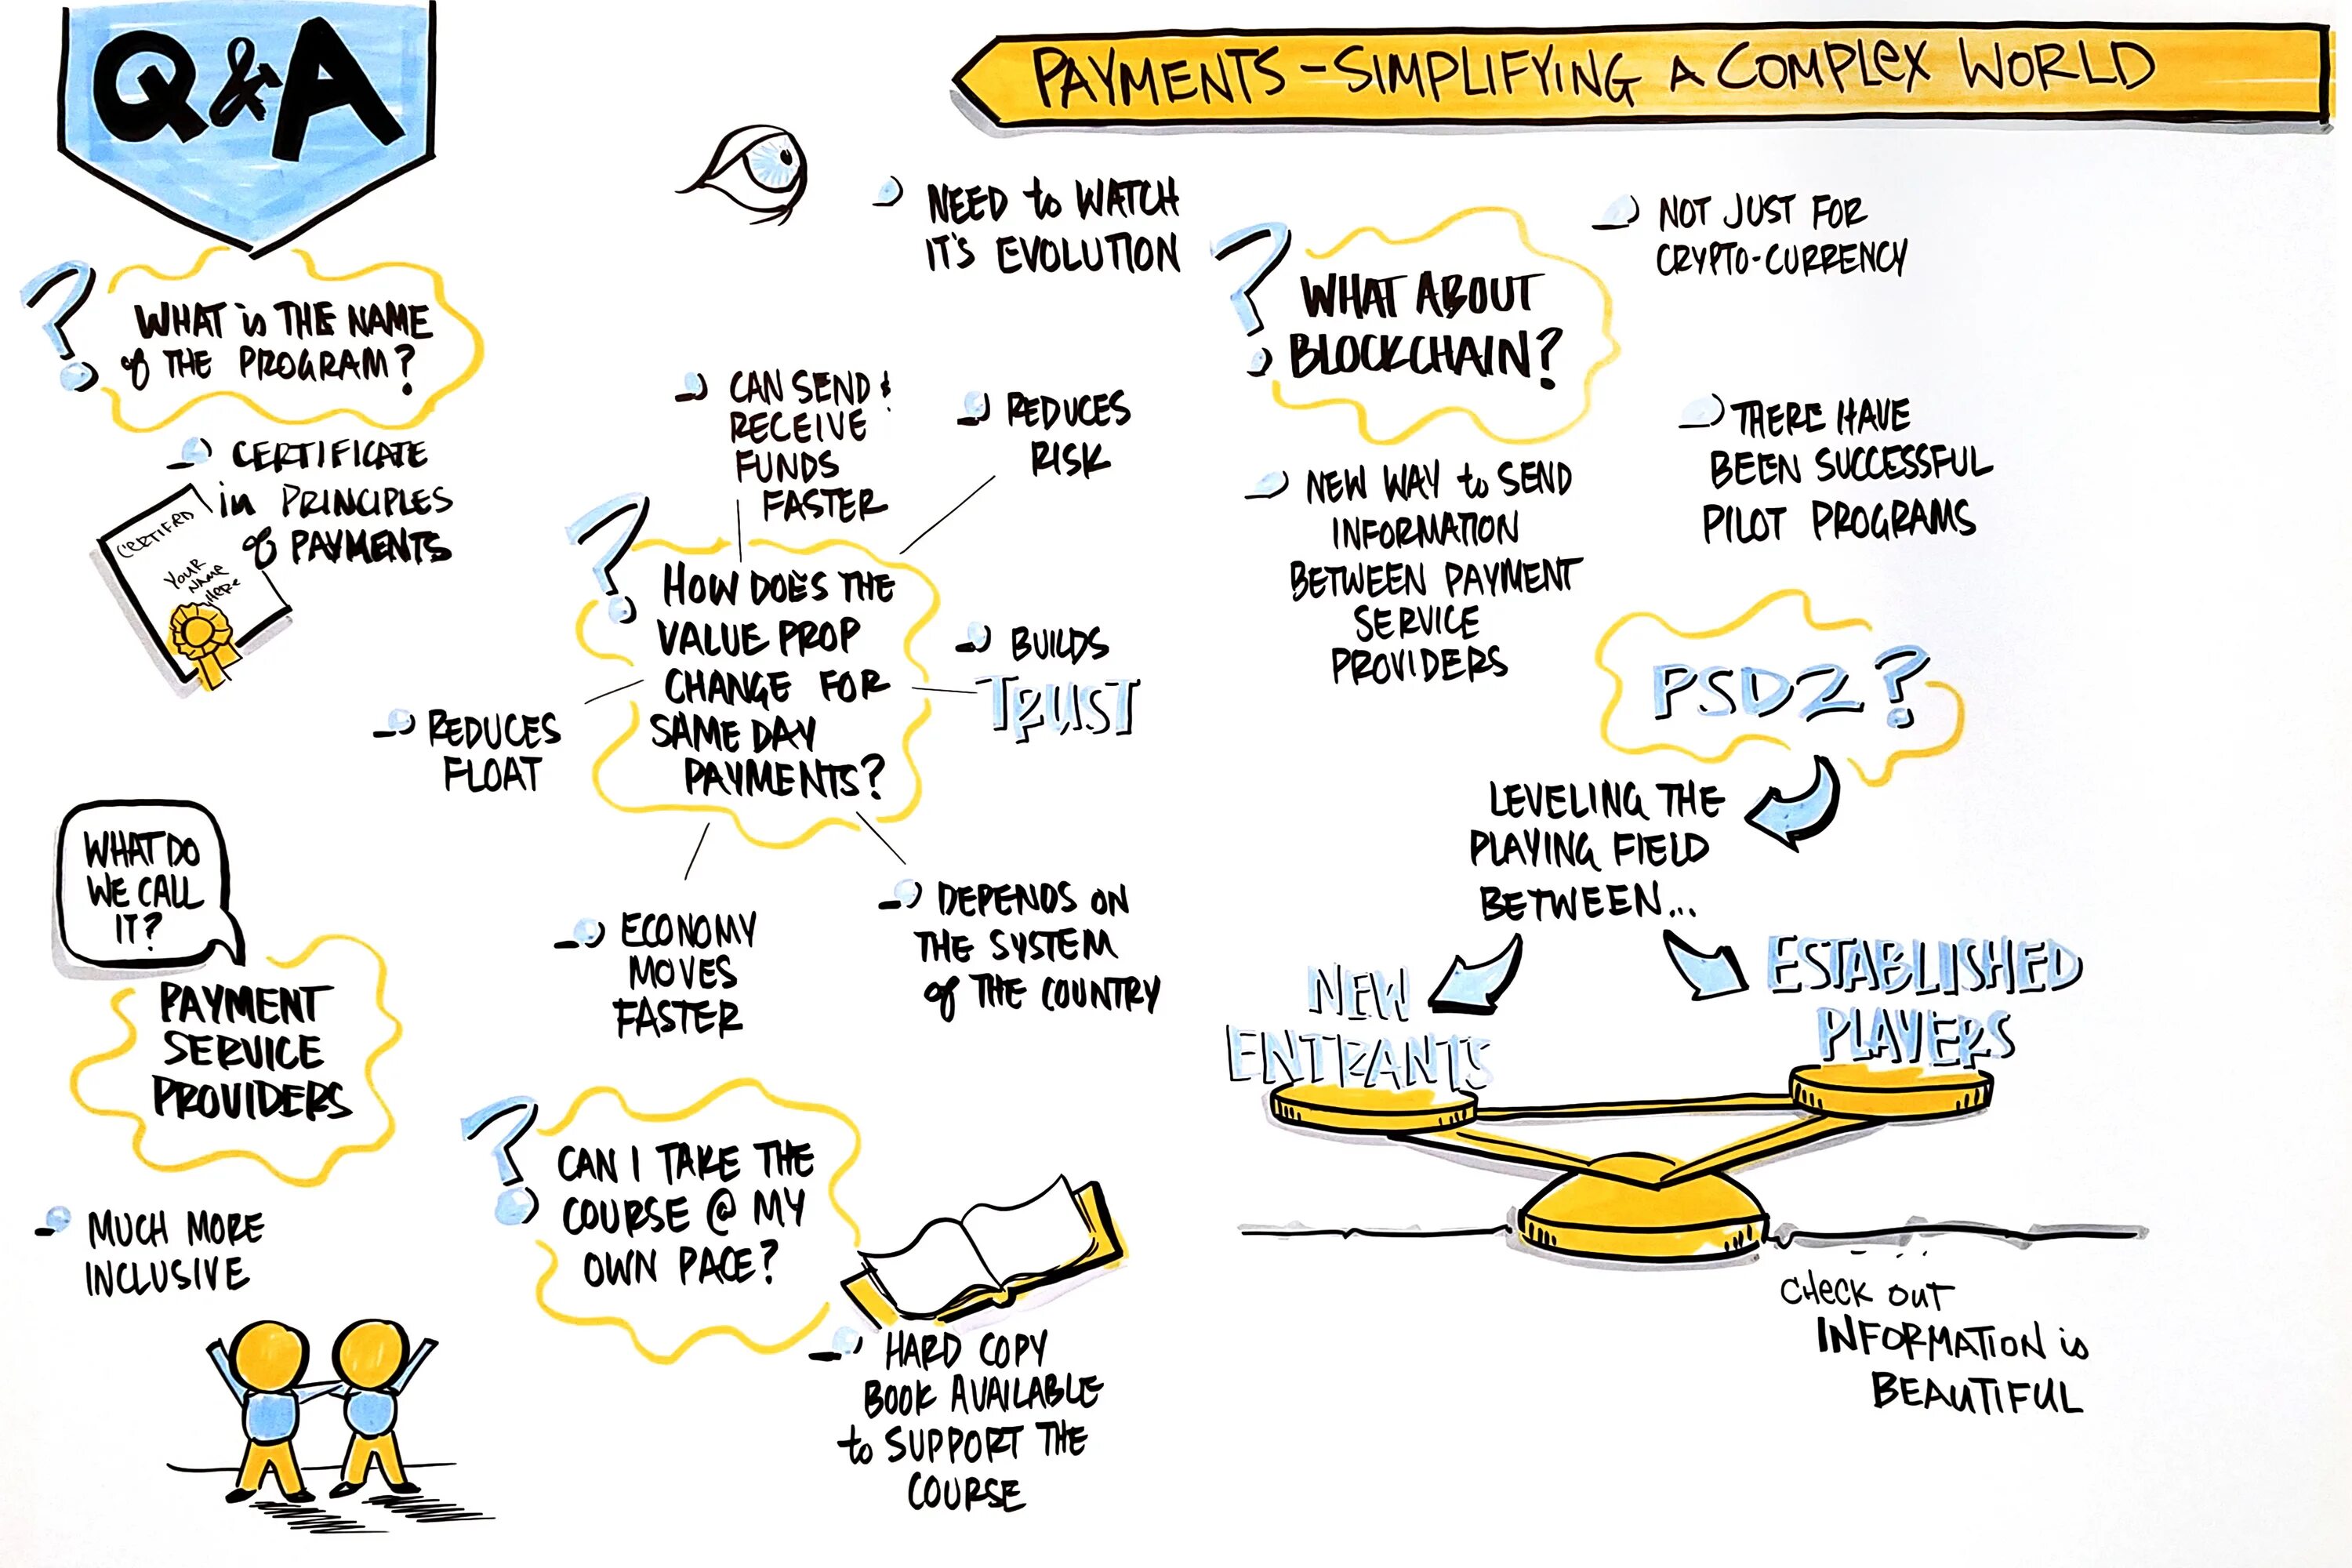 Q&A
PAYMENTS - SIMPLIFYING A COMPLEX WORLD
WHAT is THE NAME
of THE PROGRAM?
CERTIFICATE
in PRINCIPLES
of PAYMENTS
CERTIFIED
YOUR
NAME
HERE
NEED to WATCH
IT'S EVOLUTION
WHAT ABOUT
BLOCKCHAIN?
NOT JUST FOR
CRYPTO-CURRENCY
NEW WAY to SEND
INFORMATION
BETWEEN PAYMENT
SERVICE
PROVIDERS
THERE HAVE
BEEN SUCCESSFUL
PILOT PROGRAMS
HOW DOES THE
VALUE PROP
CHANGE FOR
SAME DAY
PAYMENTS?
CAN SEND &
RECEIVE
FUNDS
FASTER
REDUCES
RISK
BUILDS
TRUST
REDUCES
FLOAT
ECONOMY
MOVES
FASTER
DEPENDS ON
THE SYSTEM
of THE COUNTRY
PSD2?
LEVELING THE
PLAYING FIELD
BETWEEN...
NEW
ENTRANTS
ESTABLISHED
PLAYERS
CHECK OUT
INFORMATION is
BEAUTIFUL
WHAT DO
WE CALL
IT?
PAYMENT
SERVICE
PROVIDERS
MUCH MORE
INCLUSIVE
CAN I TAKE THE
COURSE @ MY
OWN PACE?
HARD COPY
BOOK AVAILABLE
to SUPPORT THE
COURSE